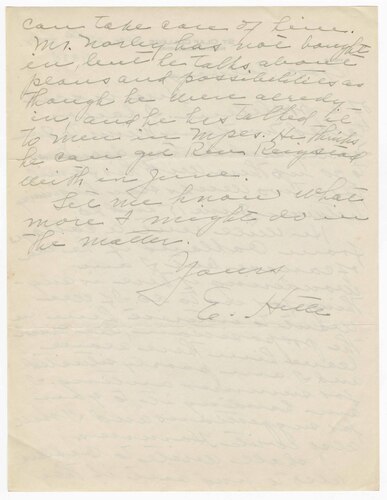 can take care of him.
Mr. Norley has not bought
in but he talks about
plans and possibilities as
though he were already
in, and he has talked it
to men in Mpls. He thinks
he can get Rev. Reigstad
with in June.
Let me know what
more I might do in
the matter.
Yours
E.